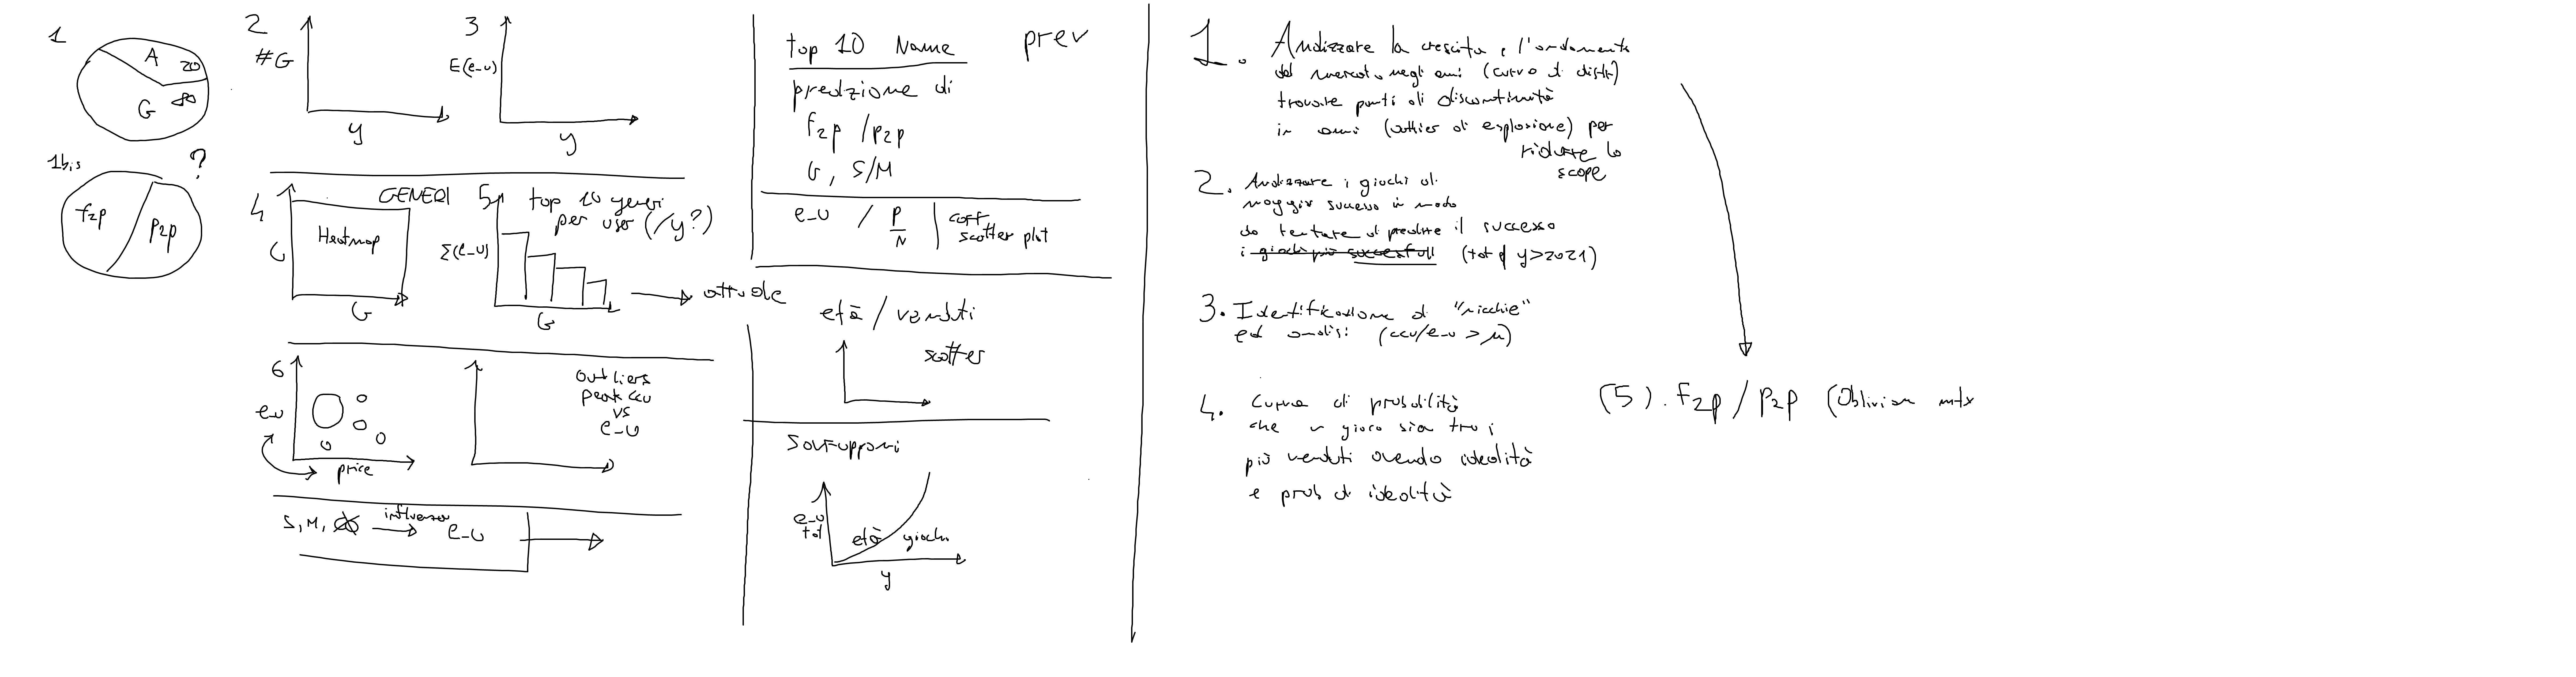 1
A 20
G 80
1bis ?
f2p
p2p
2
#G
y
3
E(e_u)
y
4 GENERI
Heatmap
G
G
5 top 10 generi
per user (/y?)
Σ(e_u)
G
attuale
6
e_u
price
Outliers
peak ccu
vs
e_u
S, M,
influenza
e_u
top 10 Name prev
predizione di
f2p / p2p
G, S/M
e_u / P
N
scatter plot
età / venduti
scatter
Sovrapponi
e_u
tot
età giochi
y
1. Analizzare la crescita e l'andamento
del mercato negli anni (curva di distr)
trovare punti di discontinuità
in anni (outlier di esplosione) per
ridurre lo
scope
2. Analizzare i giochi di
maggior successo in modo
da tentare di predire il successo
i giochi più successfull (tot di y>2021)
3. Identificazione di "nicchie"
ed analisi (ccu/e_u > μ)
4. Curva di probabilità
che un gioco sia tra i
più venduti avendo idealità
e prob di idealità
(5). f2p / p2p (Oblivion mtx